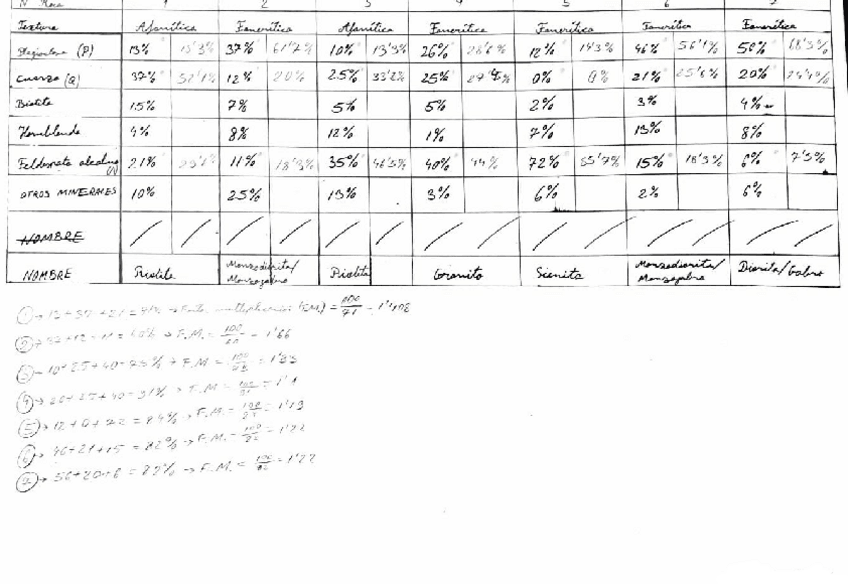 Nº Roca 1 2 3 4 5 6 7
Textura Afanítica Fanerítica Afanítica Fanerítica Fanerítica Fanerítica Fanerítica
Plagioclasa (P) 13% 37% 61'7% 10% 13'3% 26% 28'6% 12% 14'3% 46% 56'1% 50% 68'3%
Cuarzo (Q) 37% 52'1% 12% 20% 25% 33'2% 25% 0% 0% 21% 25'6% 20% 24'4%
Biotita 15% 7% 5% 5% 2% 3% 4%
Hornblenda 4% 8% 12% 1% 7% 13% 8%
Feldespato alcalino (A) 21% 11% 18'3% 35% 46'5% 40% 44% 72% 85'7% 15% 18'3% 6% 7'3%
OTROS MINERALES 10% 25% 13% 3% 6% 2% 6%
NOMBRE
NOMBRE Riolita Monzodiorita/ Monzogabro Riolita Granito Sienita Monzodiorita/ Monzogabro Diorita/Gabro
① → (F.M.) = 100/71 = 1'408
② → F.M. = 100/60 = 1'66
③ → F.M. = 1'33
④ 26+25+40=91% → F.M. = 100/91 = 1'1
⑤ → 12+0+72=84% → F.M. = 1'19
⑥ → 46+21+15=82% → F.M. = 1'22
⑦ → 56+20+6=82% → F.M. = 1'22